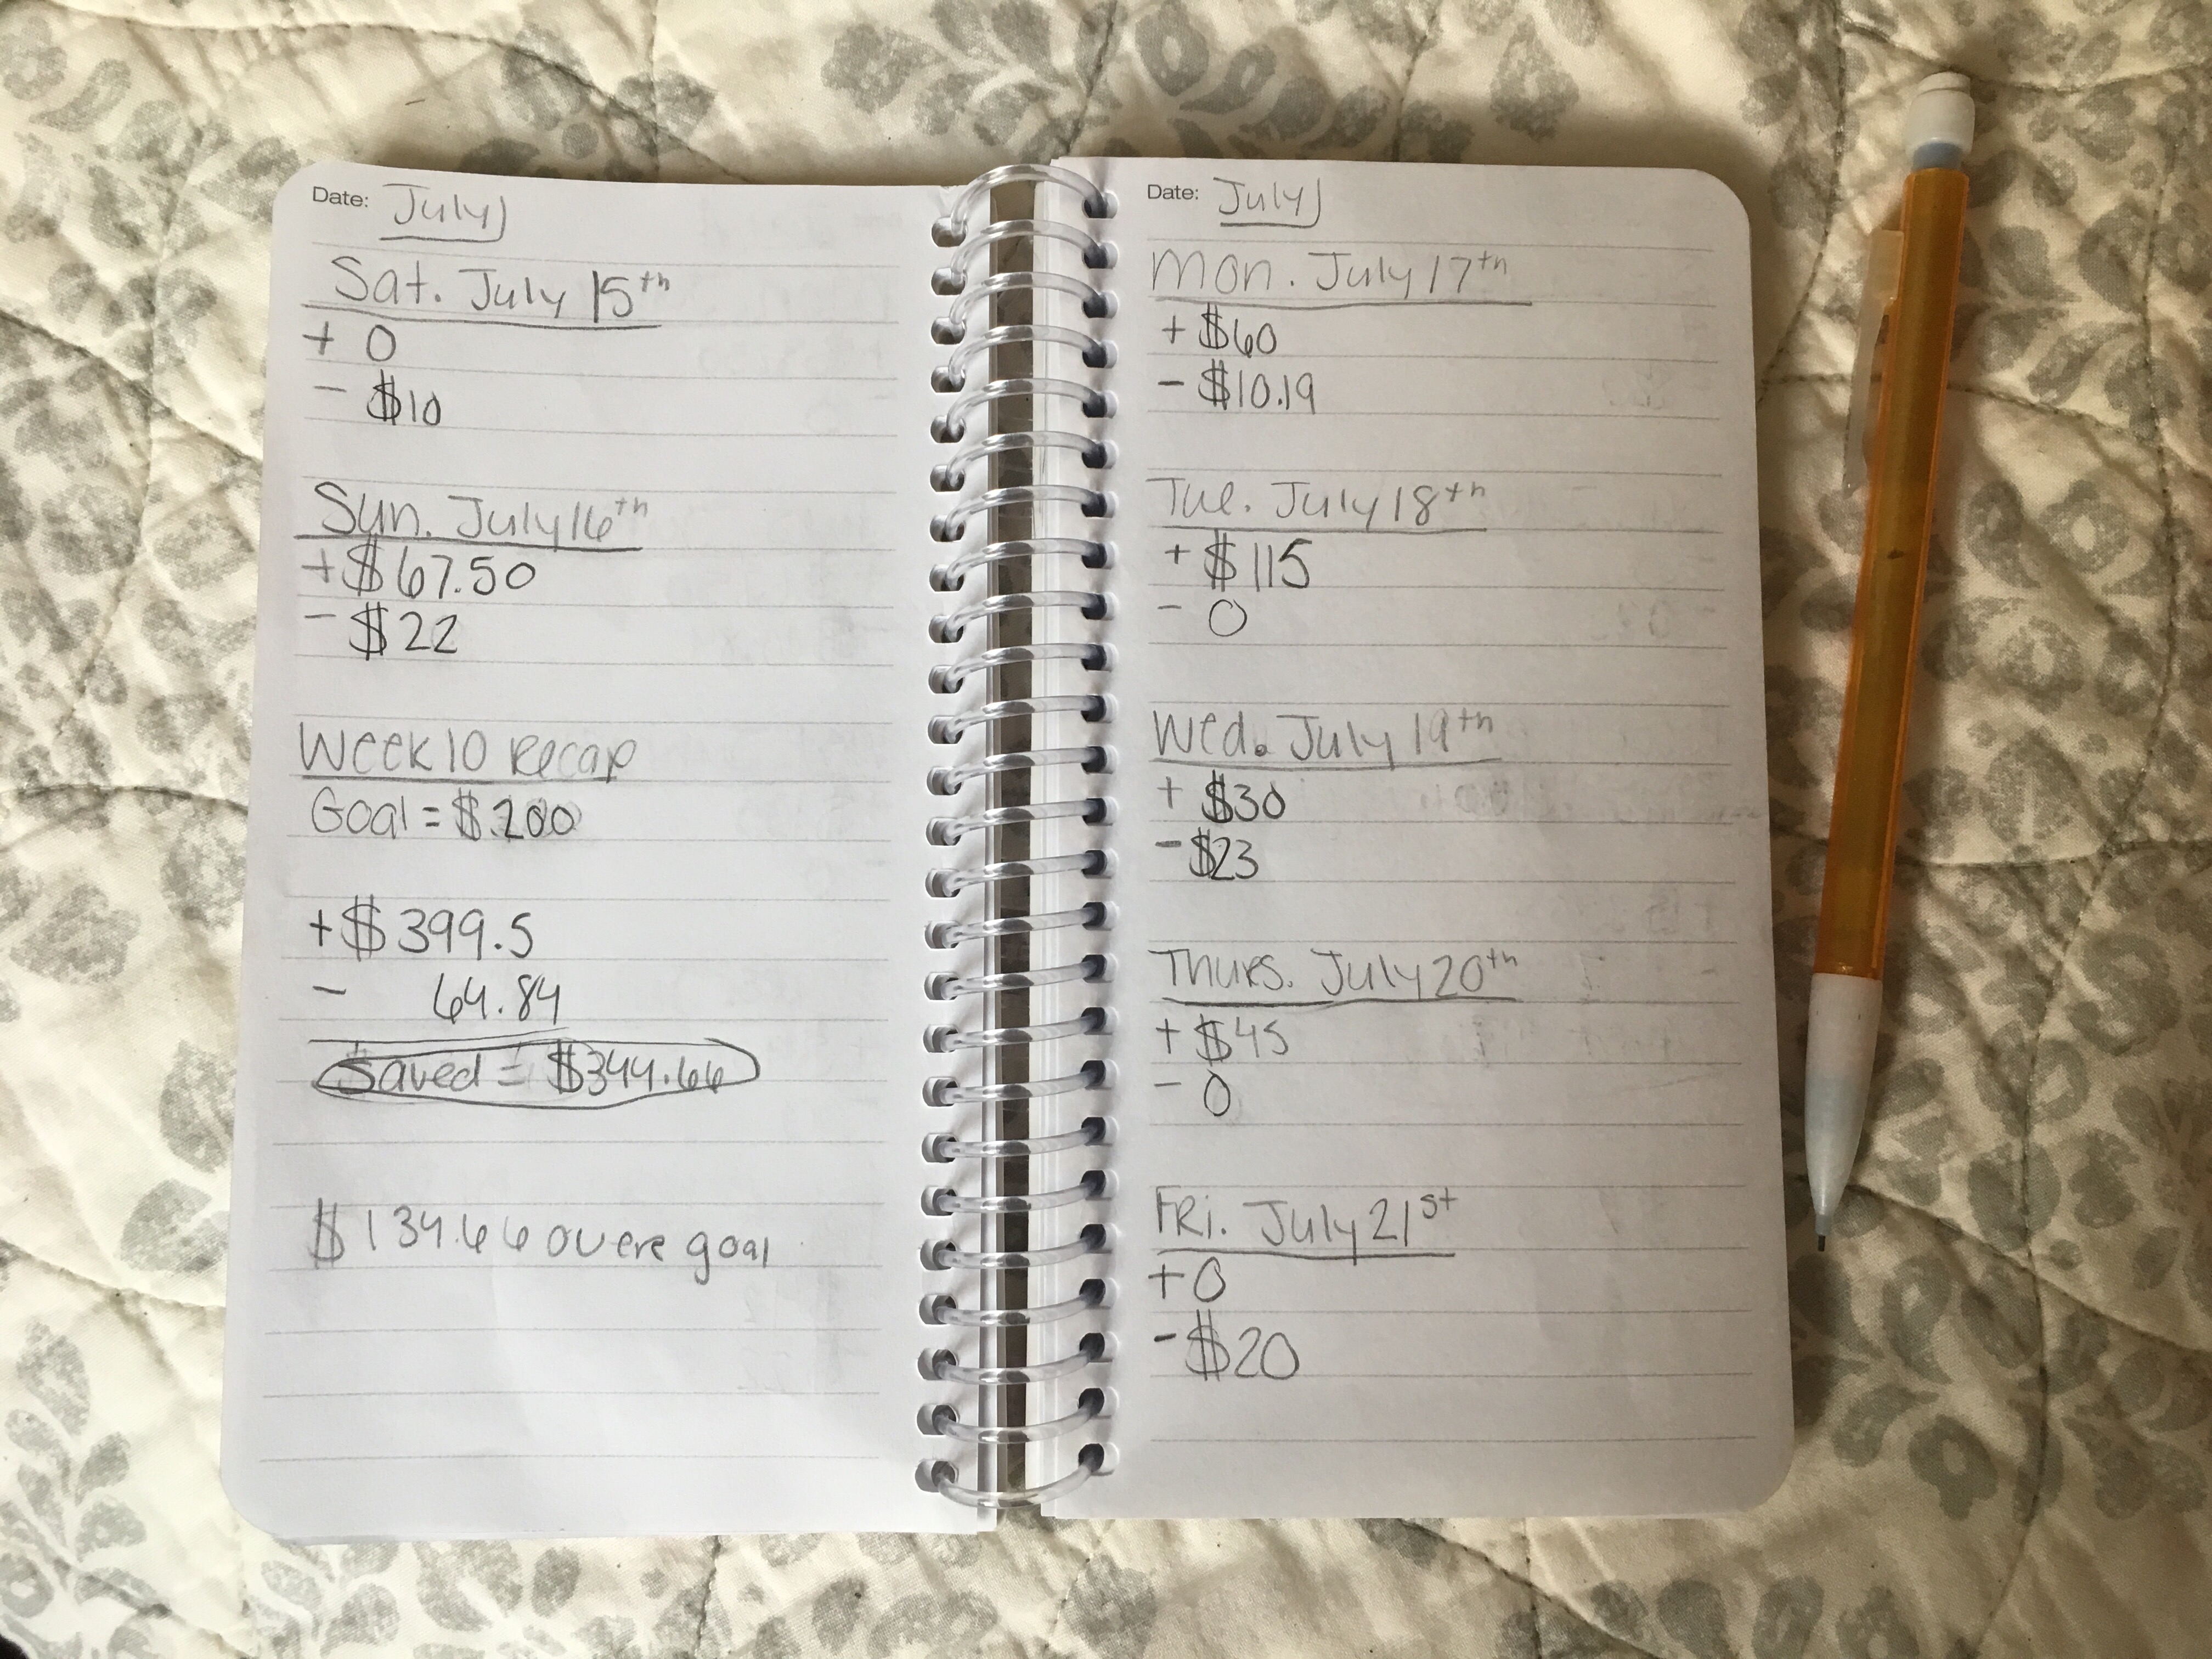 Date: July
Sat. July 15th
+ 0
- $10
Sun. July 16th
+ $67.50
- $22
Week 10 Recap
Goal = $200
+ $399.5
- 64.84
Saved = $344.66
$134.66 overe goal
Date: July
Mon. July 17th
+ $60
- $10.19
Tue. July 18th
+ $115
- 0
Wed. July 19th
+ $30
- $23
Thurs. July 20th
+ $45
- 0
Fri. July 21st
+ 0
- $20